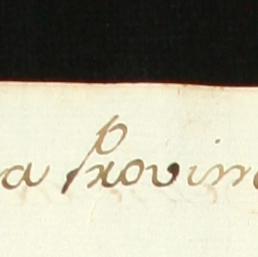 a Provin